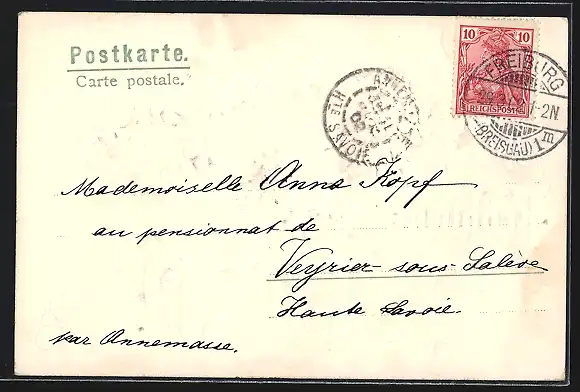 Postkarte.
Carte postale.
10 10
REICHSPOST
FREIBURG
1-2N
(BREISGAU) 1m
ANNEMASSE
HTE SAVOIE
Mademoiselle Anna Kopf
au pensionnat de
Veyrier-sous-Salève
Haute Savoie.
par Annemasse.